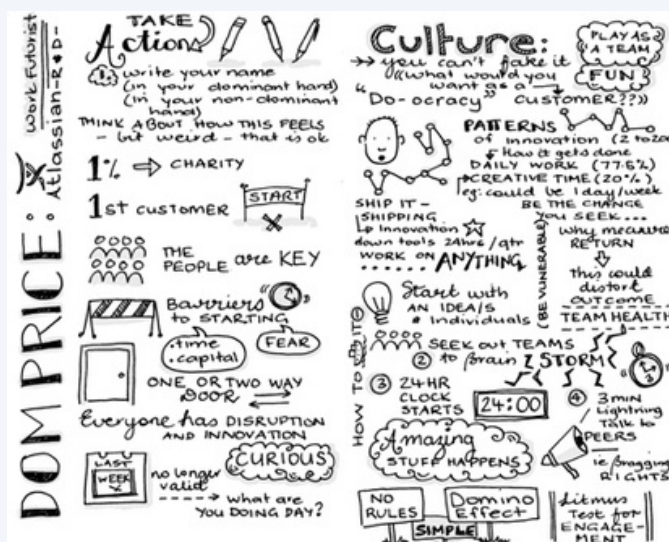 DOM PRICE:
Work Futurist
Atlassian-R+D-
TAKE
Action
write your name
(in your dominant hand)
(in your non-dominant
hand)
THINK ABOUT HOW THIS FEELS
- bit weird - that is ok
1% ⇒ CHARITY
1st CUSTOMER
START
THE
PEOPLE are KEY
Barriers
to STARTING
.time
.capital
FEAR
ONE OR TWO WAY
DOOR
Everyone has DISRUPTION
AND INNOVATION
CURIOUS
LAST
WEEK
no longer
valid
what are
YOU DOING DAY?
Culture:
you can't fake it
"what would you
want as a
CUSTOMER??"
"Do-ocracy"
PLAY AS
A TEAM
FUN
PATTERNS
of innovation
How it gets done
DAILY WORK
CREATIVE TIME (20%)
eg: could be 1 day/week
SHIP IT -
SHIPPING
Innovation
down tools 24hrs/qtr
WORK ON ANYTHING
BE THE CHANGE
YOU SEEK...
(BE VUNERABLE)
why measure
RETURN
this could
distort
OUTCOME
TEAM HEALTH
HOW TO
Start with
AN IDEA/S
& Individuals
② SEEK OUT TEAMS
to brain STORM
③ 24HR
CLOCK
STARTS
24:00
④ 3 min
Lightning
Talk to
PEERS
ie bragging
RIGHTS
Amazing
STUFF HAPPENS
NO
RULES
Domino
Effect
SIMPLE
Litmus
Test for
ENGAGE-
MENT